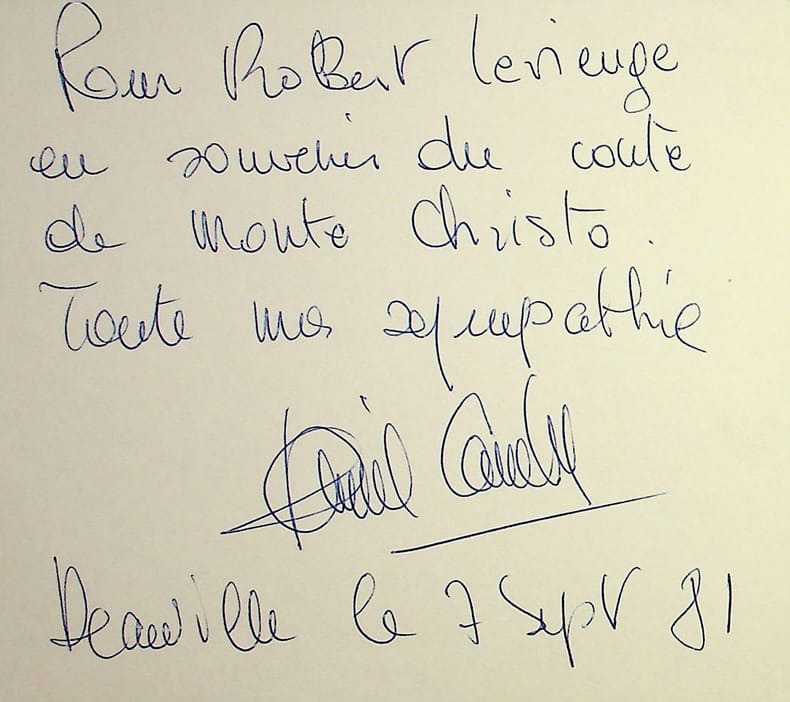 Pour Robert Levieuge
en souvenir du conte
de Monte Christo.
Toute ma sympathie
Daniel
Deauville le 7 Sept 81